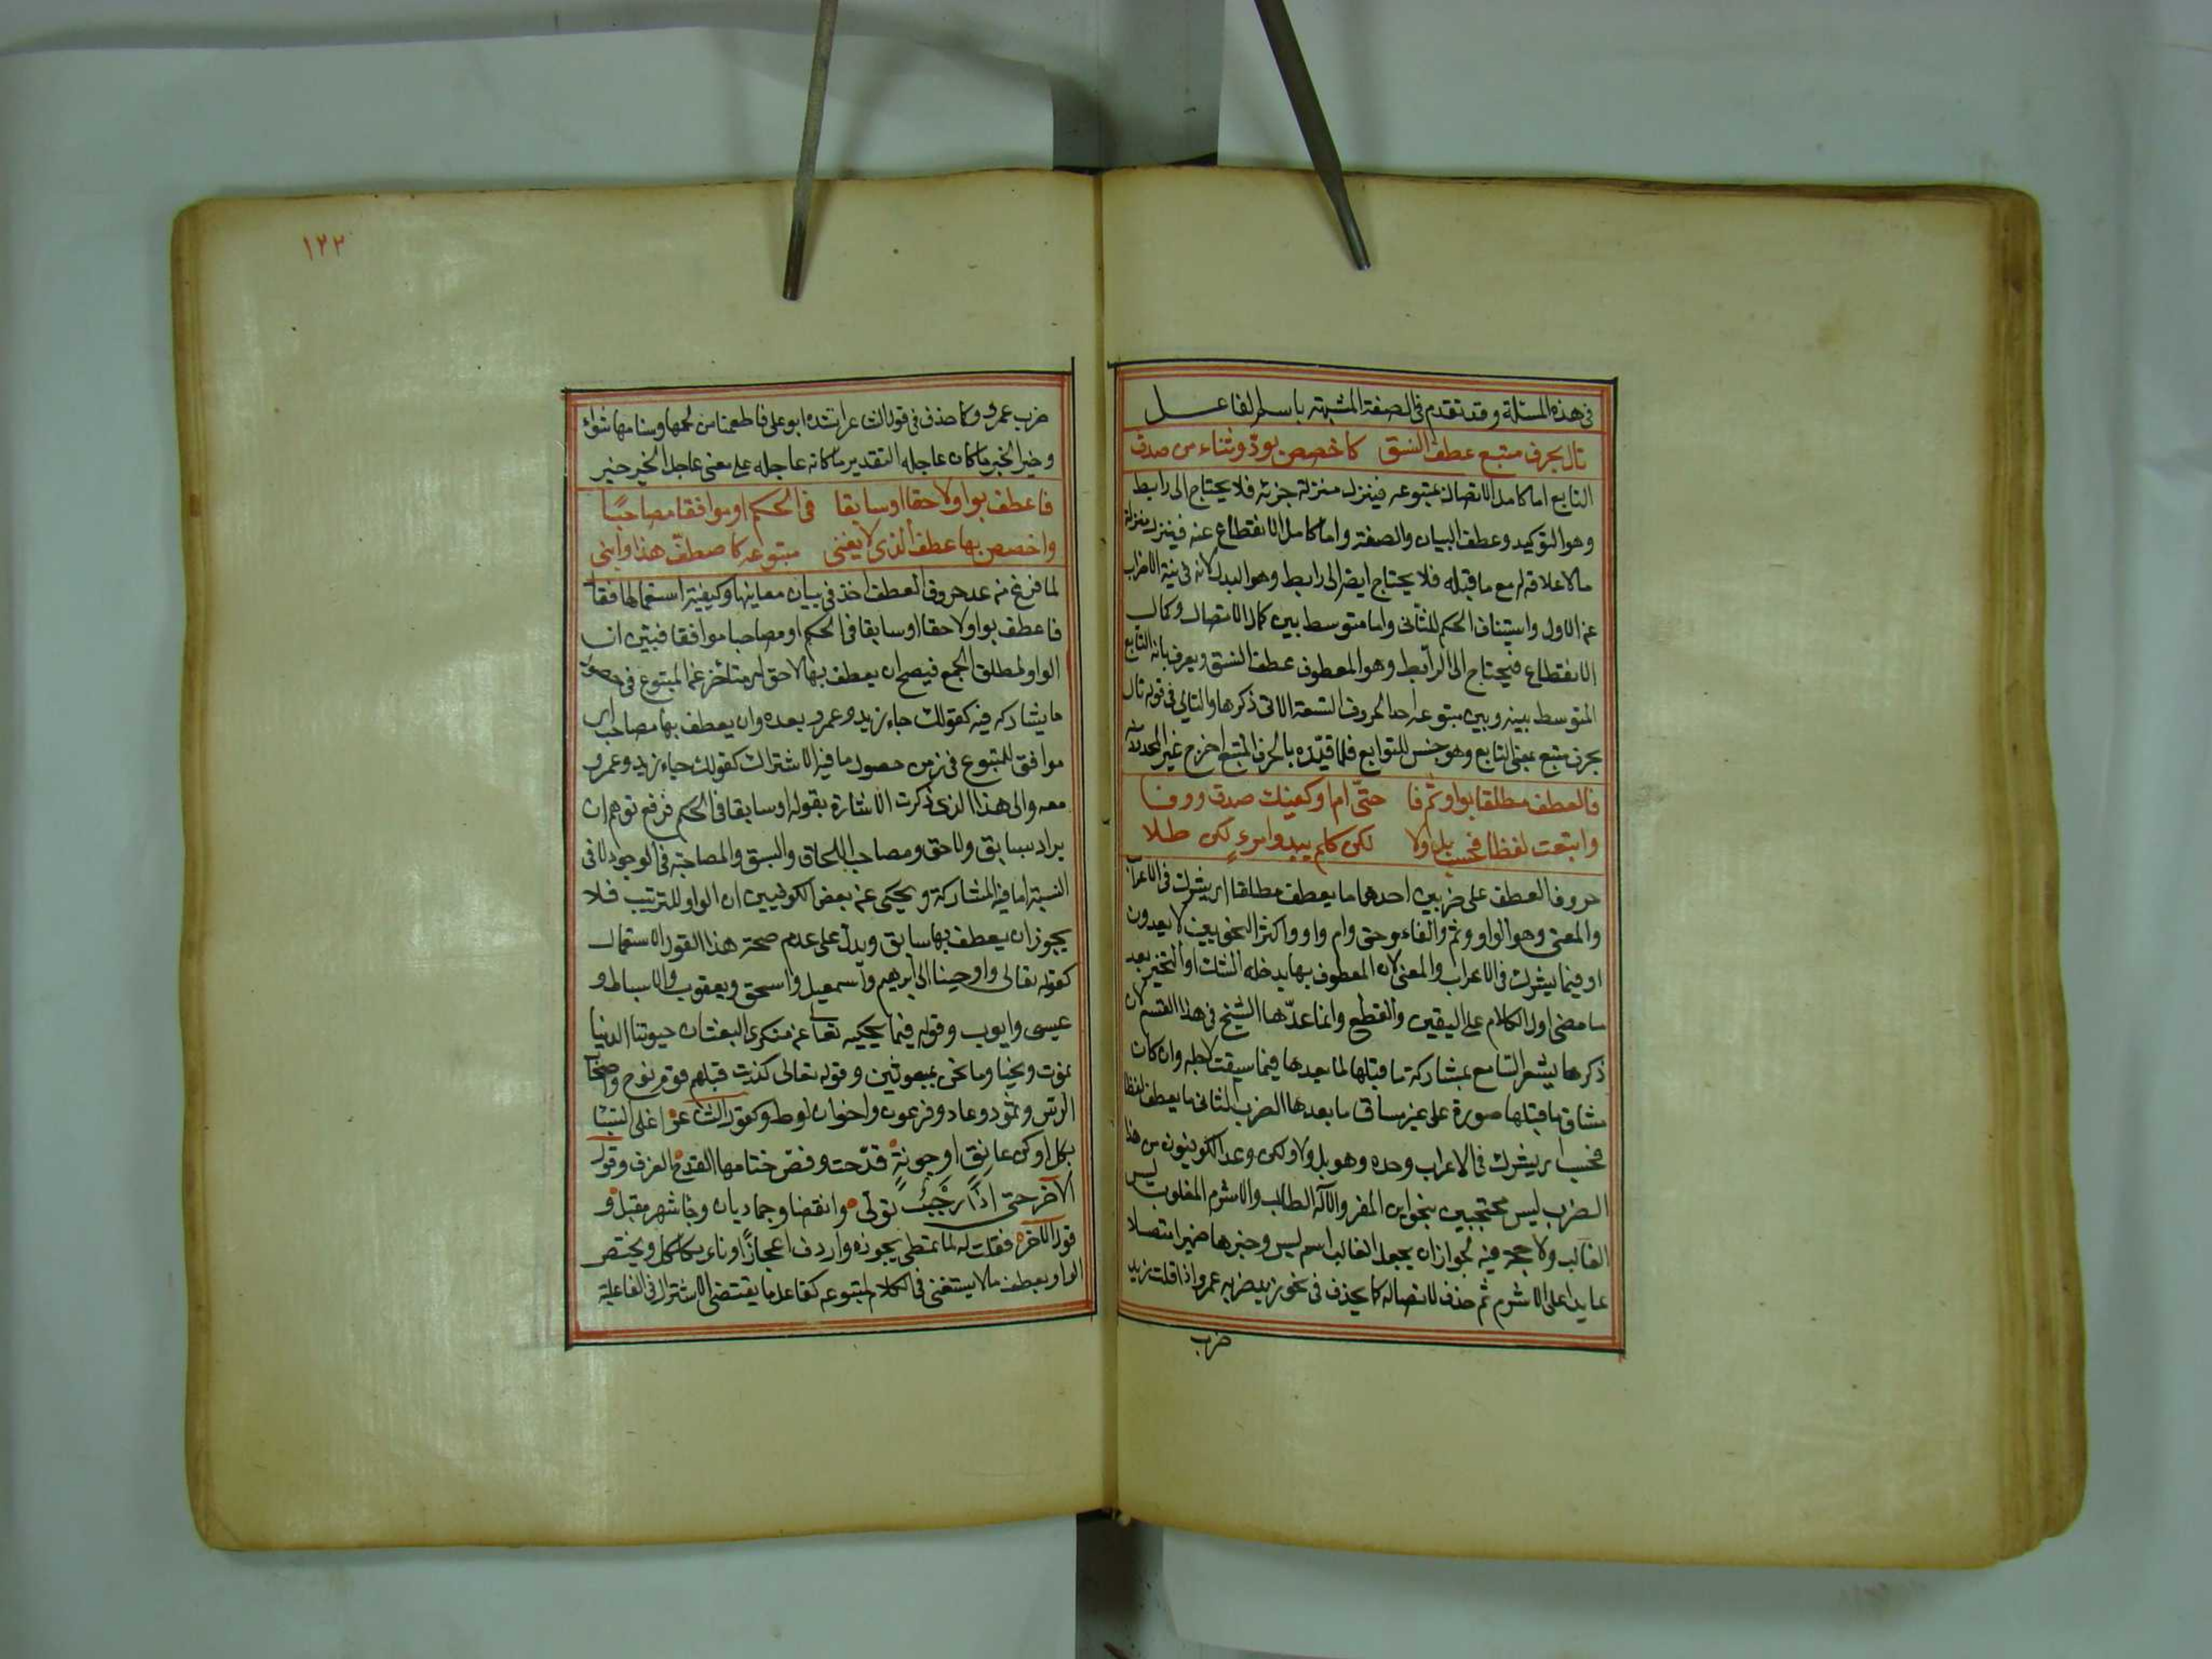 فى هذه المسئلة وقد تقدم فى الصفة المشبهة باسم الفاعل
تال بحرف متبع عطف النسق كاخصص بودّ وثناء من صدق
التابع اما كامل الاتصال بمتبوعه فينزل منزلة جزئه فلا يحتاج الى رابط
وهو التوكيد وعطف البيان والصفة واما كامل الانقطاع عنه فينزل منزلة
ما لا علاقة له مع ما قبله فلا يحتاج ايضا الى رابط وهو البدل لانه فى نية الاضراب
عن الاول واستيناف الحكم للثانى واما متوسط بين كمال الاتصال وكمال
الانقطاع فيحتاج الى الرابط وهو المعطوف عطف النسق ويعرف بانه التابع
المتوسط بينه وبين متبوعه احد الحروف التسعة الاتى ذكرها والتالى فى قوله تال
بحرف متبع بمعنى التابع وهو جنس للتوابع فلما قيّده بالحرف المتبع اخرج غير المحدود
فالعطف مطلقا بواو ثم فا حتّى ام او كفيك صدق ووفا
واتبعت لفظا فحسب بل ولا لكن كلم يبد وامرءٍ لكن طلا
حروف العطف على ضربين احدهما ما يعطف مطلقا اى يشرك فى الاعراب
والمعنى وهو الواو وثم والفاء وحتى وام واو واكثر النحويين لا يعدون
او فيما يشرك فى الاعراب والمعنى لان المعطوف بها يدخله الشك او التخيير بعد
ما مضى اول الكلام على اليقين والقطع وانما عدّها الشيخ فى هذا القسم لان
ذكرها يشعر السامع بمشاركة ما قبلها لما بعدها فيما سيقت لاجله وان كان
مساق ما قبلها صورة على غير مساق ما بعدها الضرب الثانى ما يعطف لفظا
فحسب اى يشرك فى الاعراب وحده وهو بل ولا ولكن وعد الكوفيون من هذا
الضرب ليس محتجين بنحو اين المفر والاله الطالب والاشرم المغلوب ليس
الغالب ولا حجة فيه لجواز ان يجعل الغالب اسم ليس وخبرها ضميرا متصلا
عايدا على الاشرم ثم حذف لاتصاله كما يحذف فى نحو زيد ضربه عمرو اذا قلت زيد
ضرب
١٢٢
ضرب عمرو وكما حذف فى قول الشاعر انشده ابو على فاطعمنا من لحمها وسنامها شواء
وخير الخير ما كان عاجله التقدير ما كانه عاجله على معنى عاجل الخير خير
فاعطف بواو لاحقا او سابقا فى الحكم او موافقا مصاحبًا
واخصص بها عطف الذى لا يغنى متبوعه كاصطفّ هذا وابنى
لما فرغ من عد حروف العطف اخذ فى بيان معاينها وكيفية استعمالها فقال
فاعطف بواو لاحقا او سابقا فى الحكم او مصاحبا موافقا فبيّن ان
الواو لمطلق الجمع فيصح ان يعطف بها لاحق اى متاخر عن المتبوع فى حصول
ما يشاركه فيه كقولك جاء زيد وعمرو بعده وان يعطف بها مصاحب اى
موافق للمتبوع فى زمن حصول ما فيه الاشتراك كقولك جاء زيد وعمرو
معه والى هذا الذى ذكرت الاشارة بقوله او سابقا فى الحكم فرفع توهم ان
يراد بسابق ولاحق ومصاحب اللحاق والسبق والمصاحبة فى الوجود لا فى
النسبة اما فيه المشاركة ويحكى عن بعض الكوفيين ان الواو للترتيب فلا
يجوز ان يعطف بها سابق ويدل على عدم صحة هذا القول الاستعمال
كقوله تعالى واوحينا الى ابرهيم واسمعيل واسحق ويعقوب والاسباط و
عيسى وايوب وقوله فيما يحكيه تعالى عن منكرى البعث ان حيوتنا الدنيا
نموت ونحيا وما نحن بمبعوثين وقوله تعالى كذبت قبلهم قوم نوح واصحاب
الرس وثمود وعاد وفرعون واخوان لوط وكقول الشاعر اغلى السبا
بكل ادكن عاتق او جونةٍ قدحت وفض ختامها القدح الغرف وقول
الآخر حتى اذا رجب تولى وانقضا وجماديان وجا شهر مقبل و
قول الاخر فقلت له لما تمطى بجوزه واردف اعجازًا وناء بكلكل ويختص
الواو بعطف ما لا يستغنى فى الكلام بمتبوعه كفاعل ما يقتضى الاشتراك فى الفاعلية